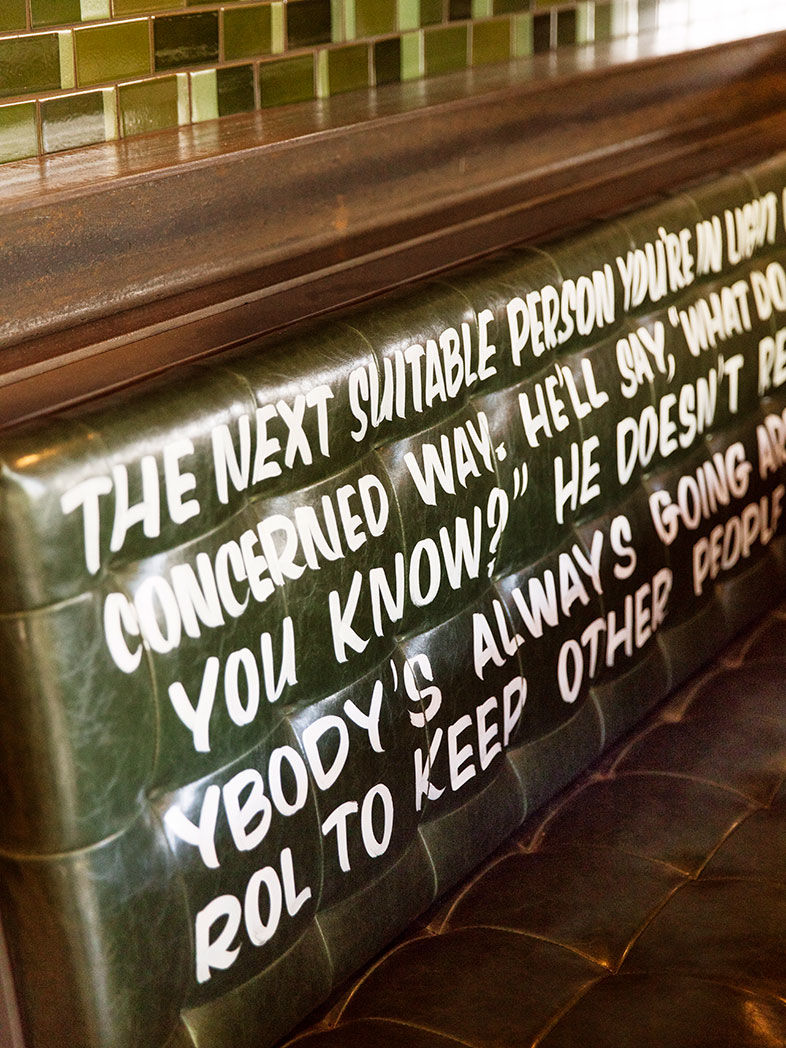 THE NEXT SUITABLE PERSON YOU'RE IN LIGHT
CONCERNED WAY. HE'LL SAY, "WHAT DO
YOU KNOW?" HE DOESN'T RE
YBODY'S ALWAYS GOING AR
ROL TO KEEP OTHER PEOPLE